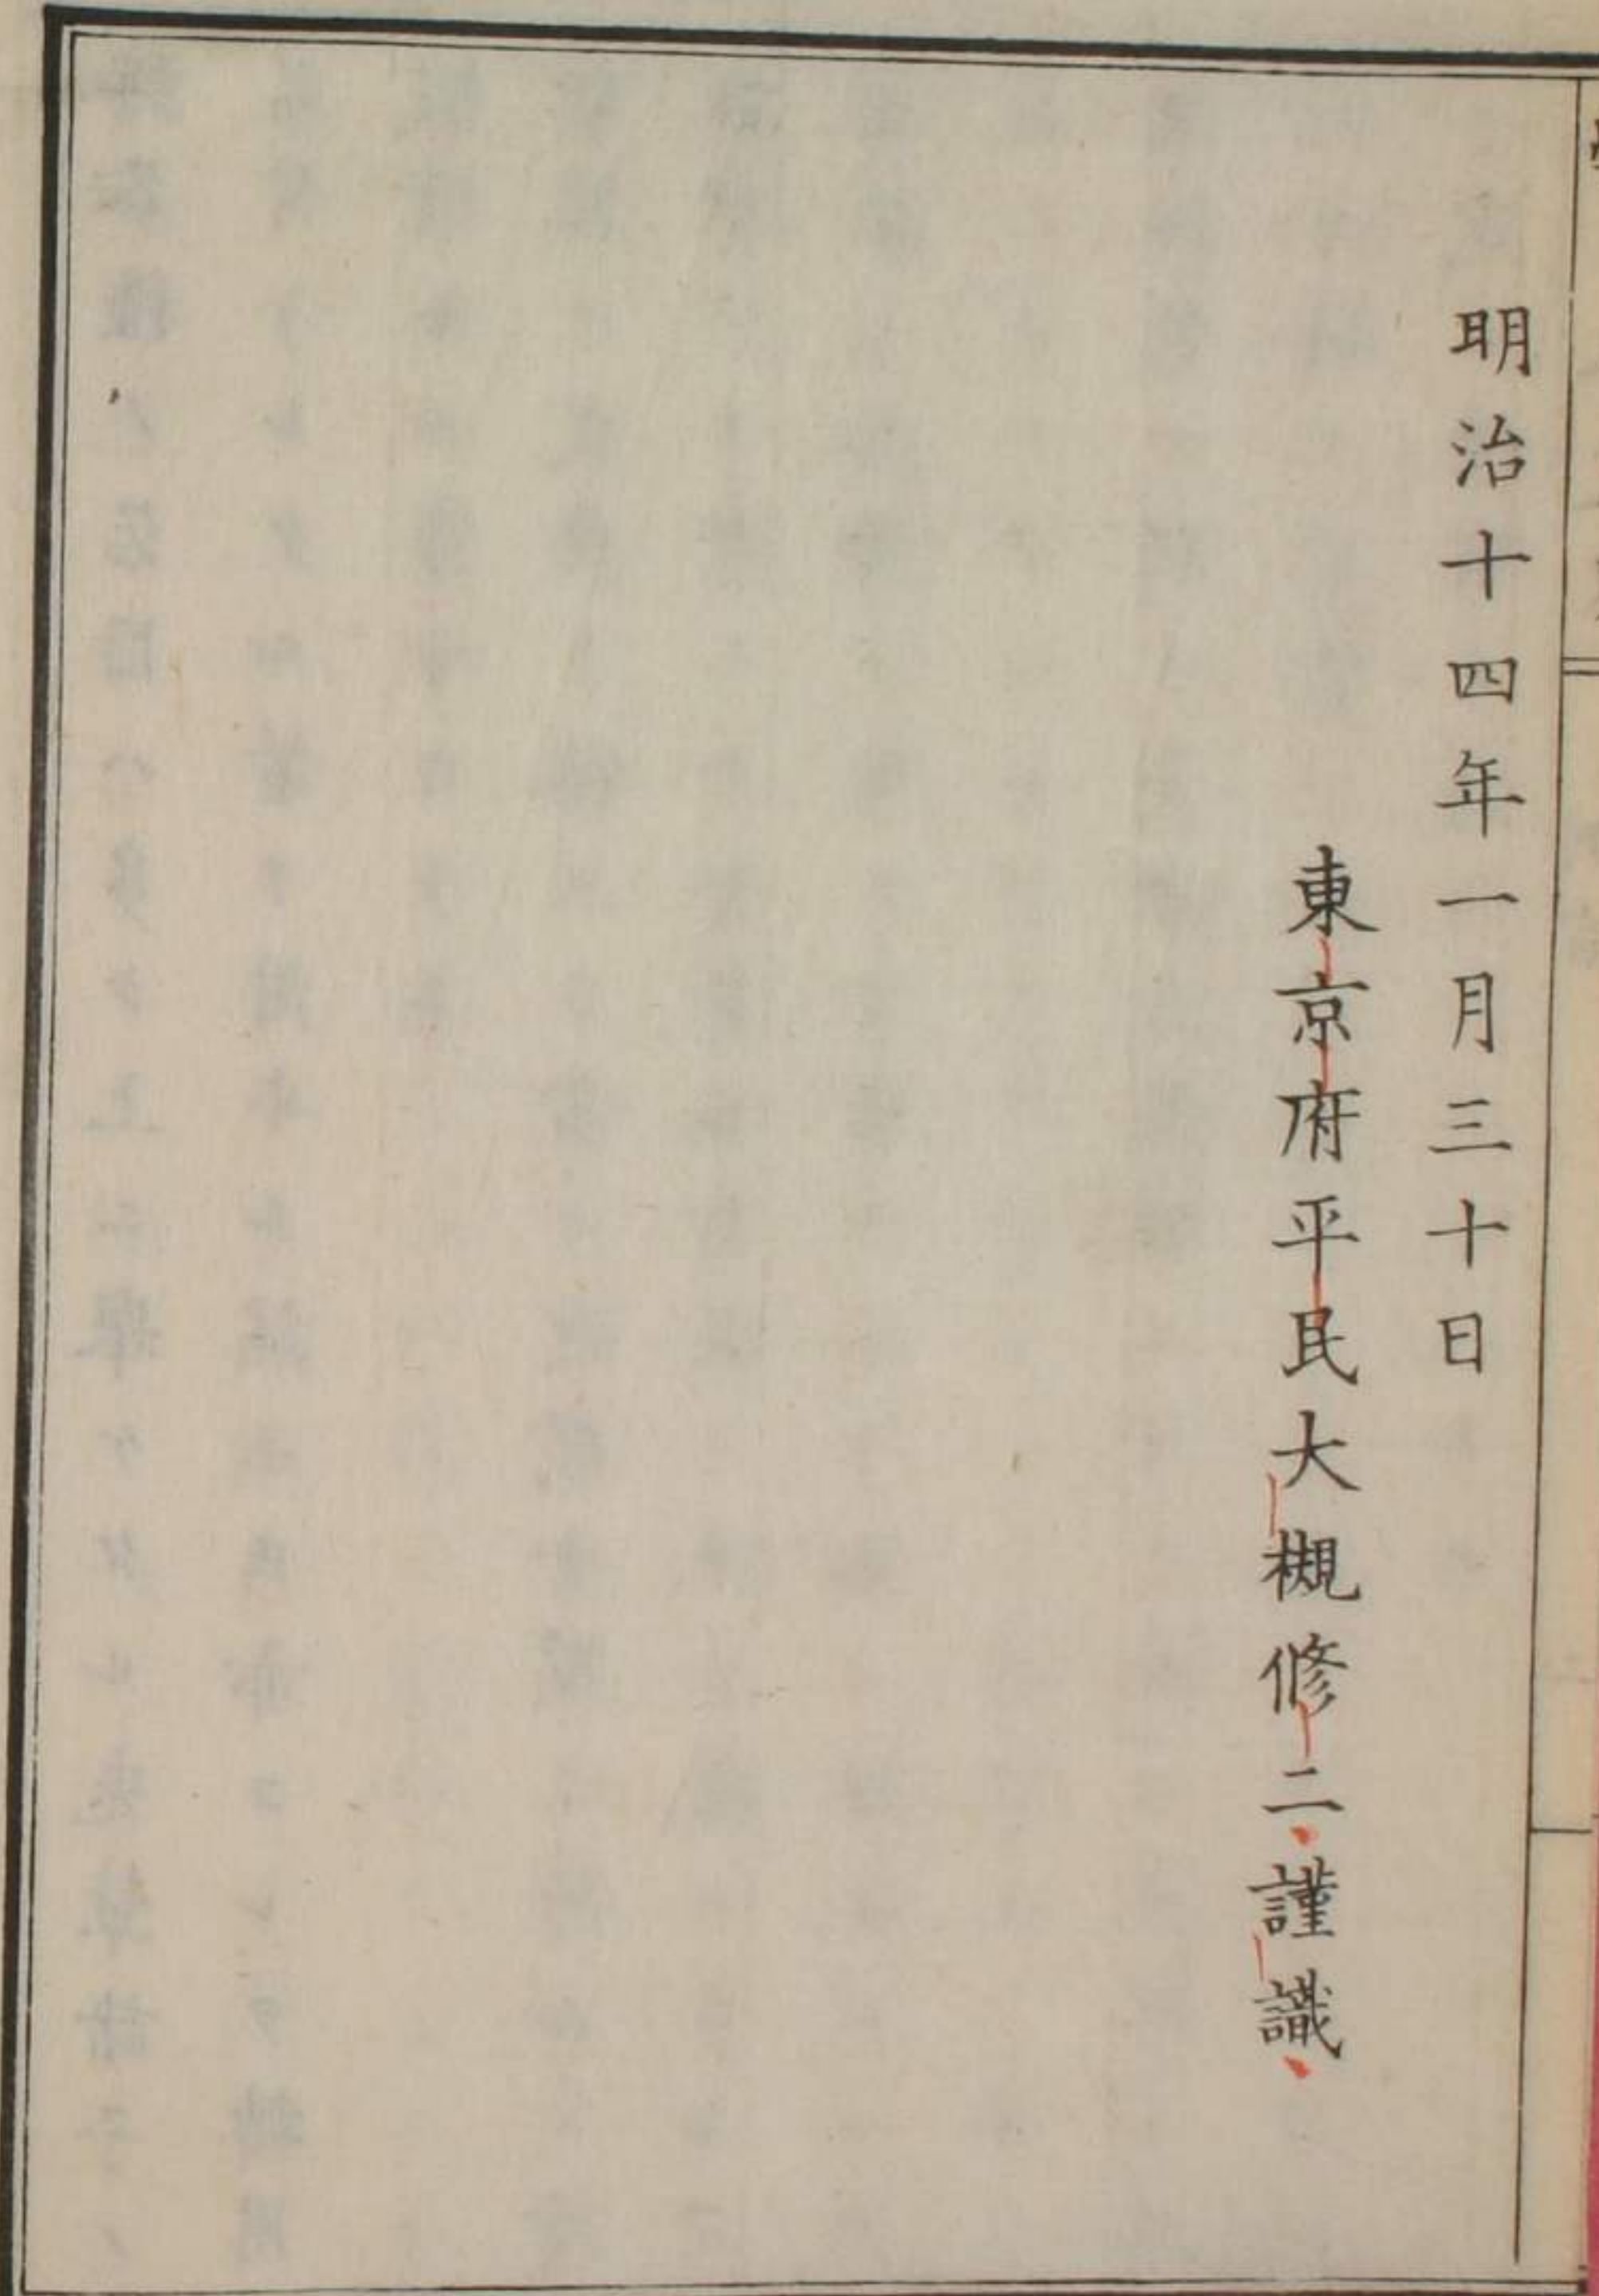 明治十四年一月三十日
東京府平民大槻修二謹識